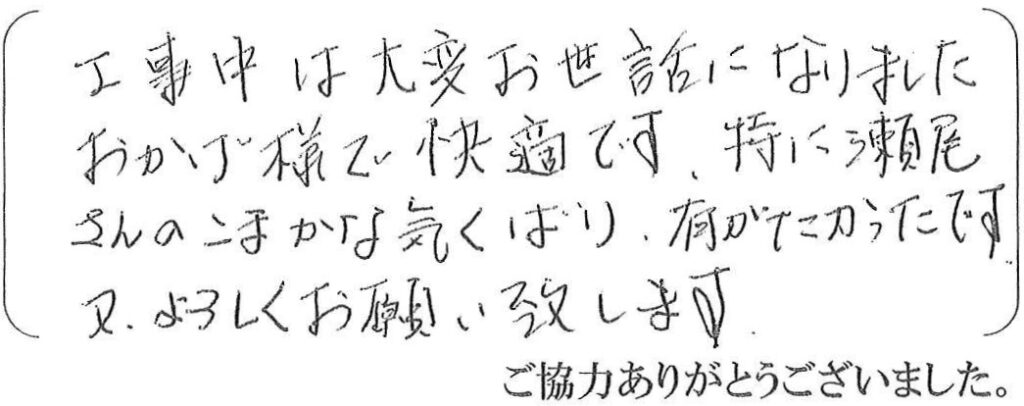 工事中は大変お世話になりました
おかげ様で快適です、特に瀬尾
さんのこまかな気くばり、有がたかったです
又、よろしくお願い致します.
ご協力ありがとうございました。